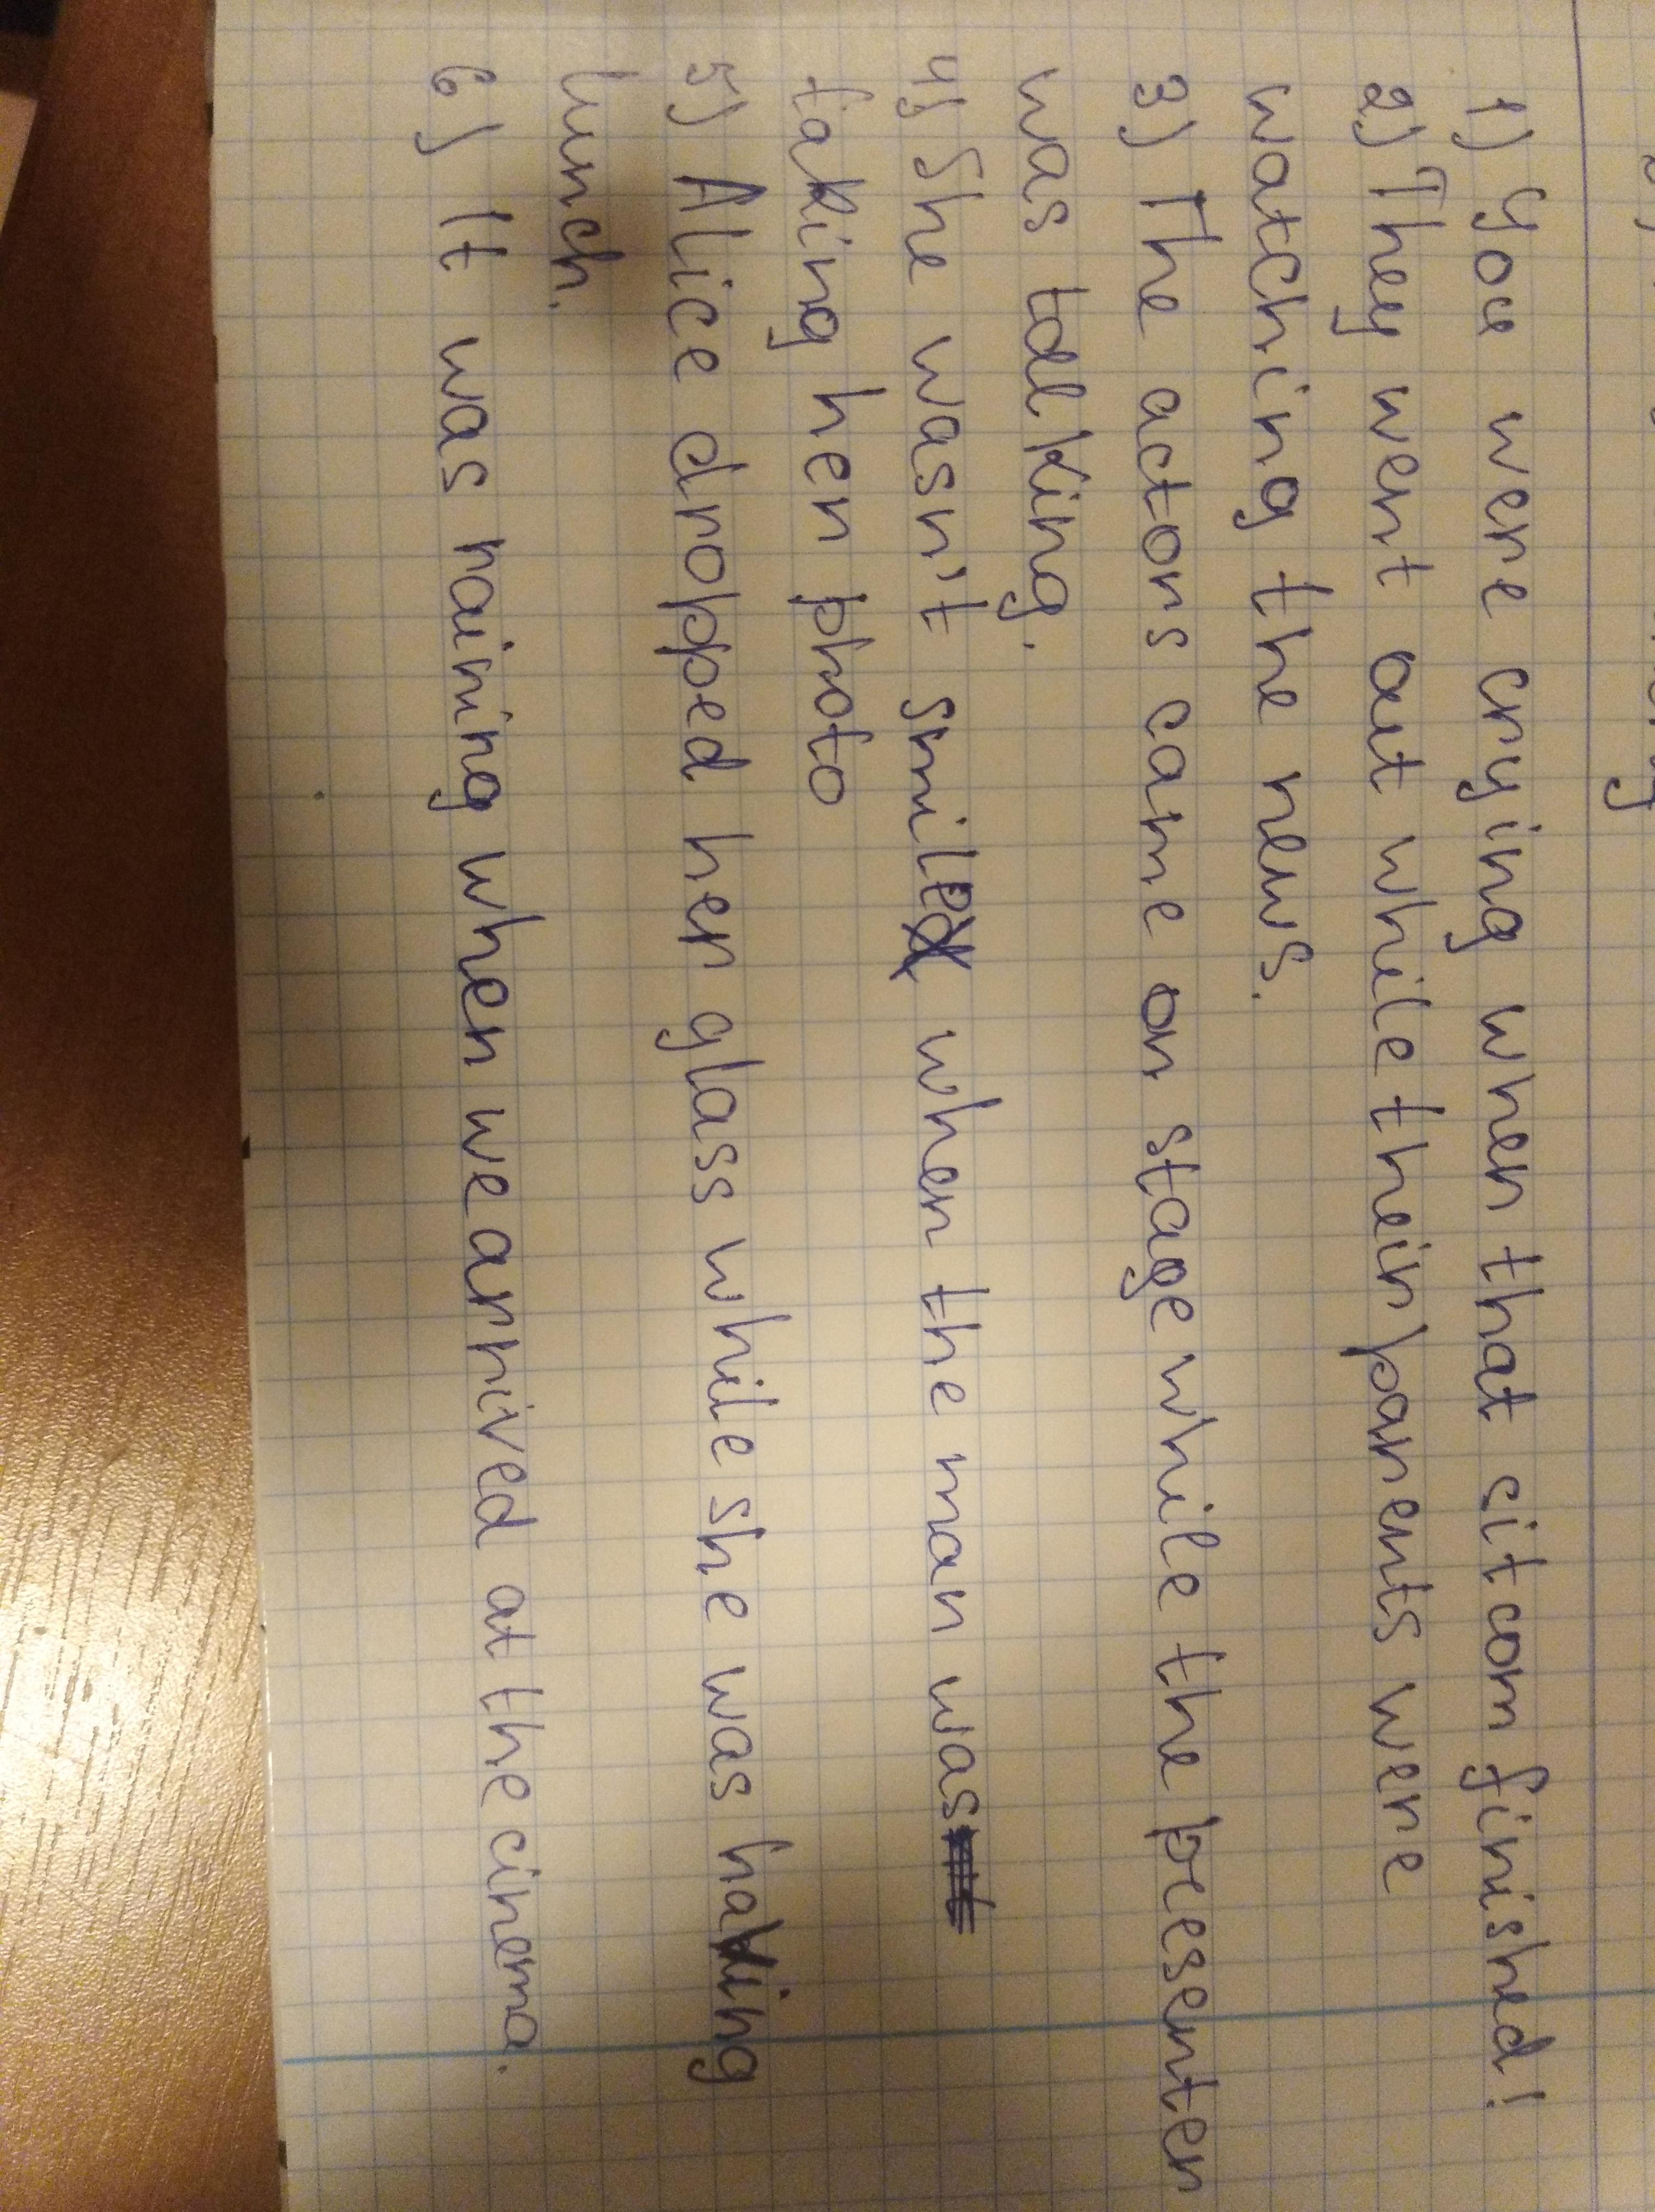 1) You were crying when that sitcom finished!
2) They went out while their parents were
watching the news.
3) The actors came on stage while the presenter
was talking.
4) She wasn't smile when the man was
taking her photo
5) Alice dropped her glass while she was having
lunch.
6) It was raining when we arrived at the cinema.